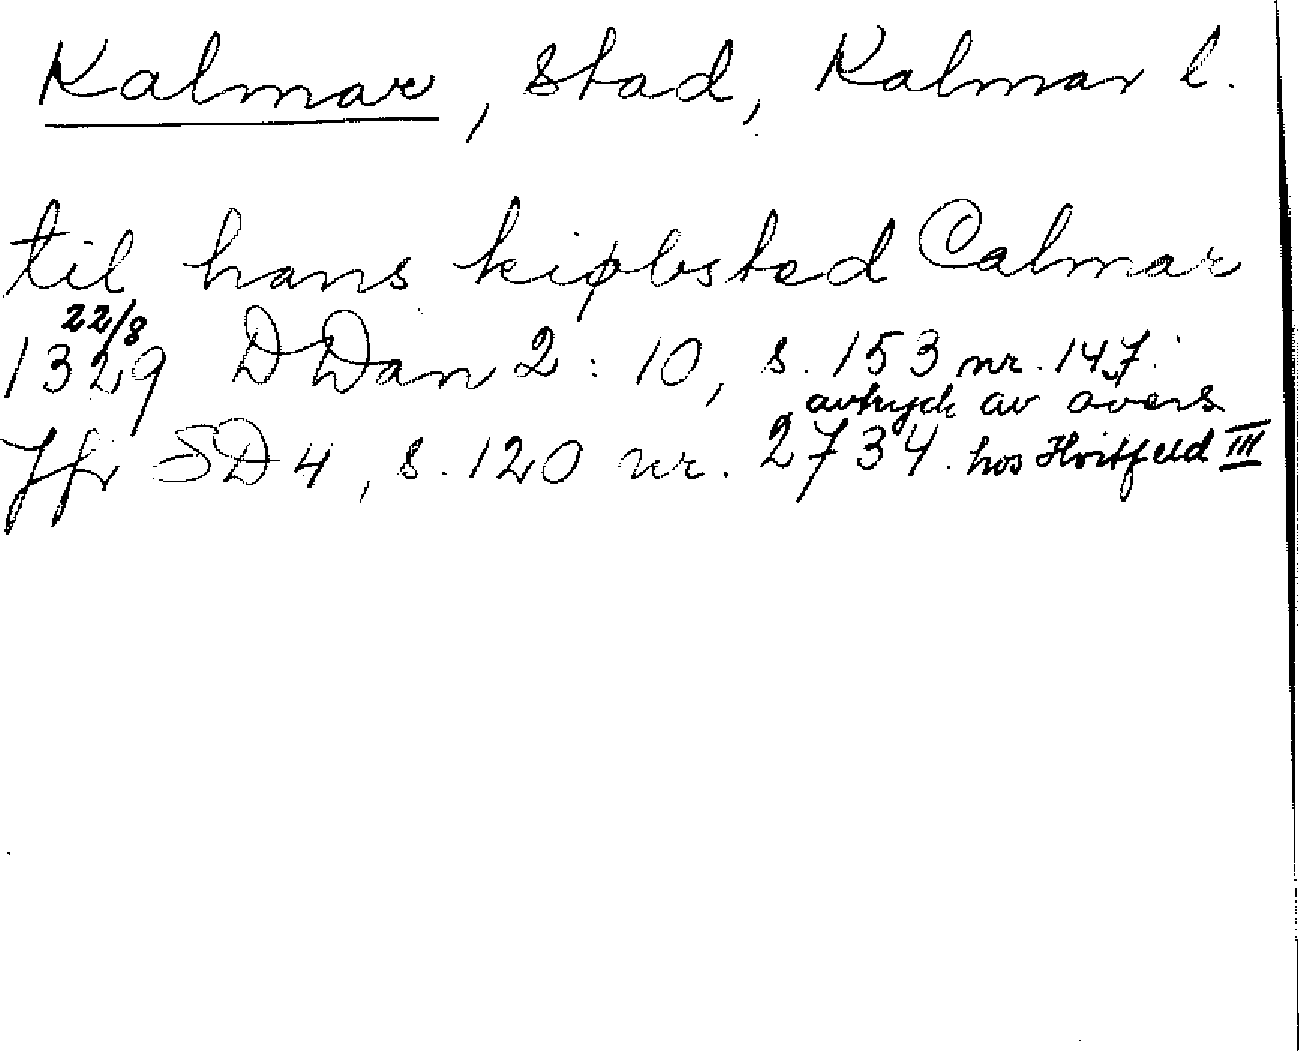 Kalmar, stad, Kalmar l.
til hans kiøbsted Calmar
22/8
1329 DDan 2:10, s. 153 nr. 147.
avtryck av övers
Jfr SD 4, s. 120 nr. 2734. hos Hvitfeld III